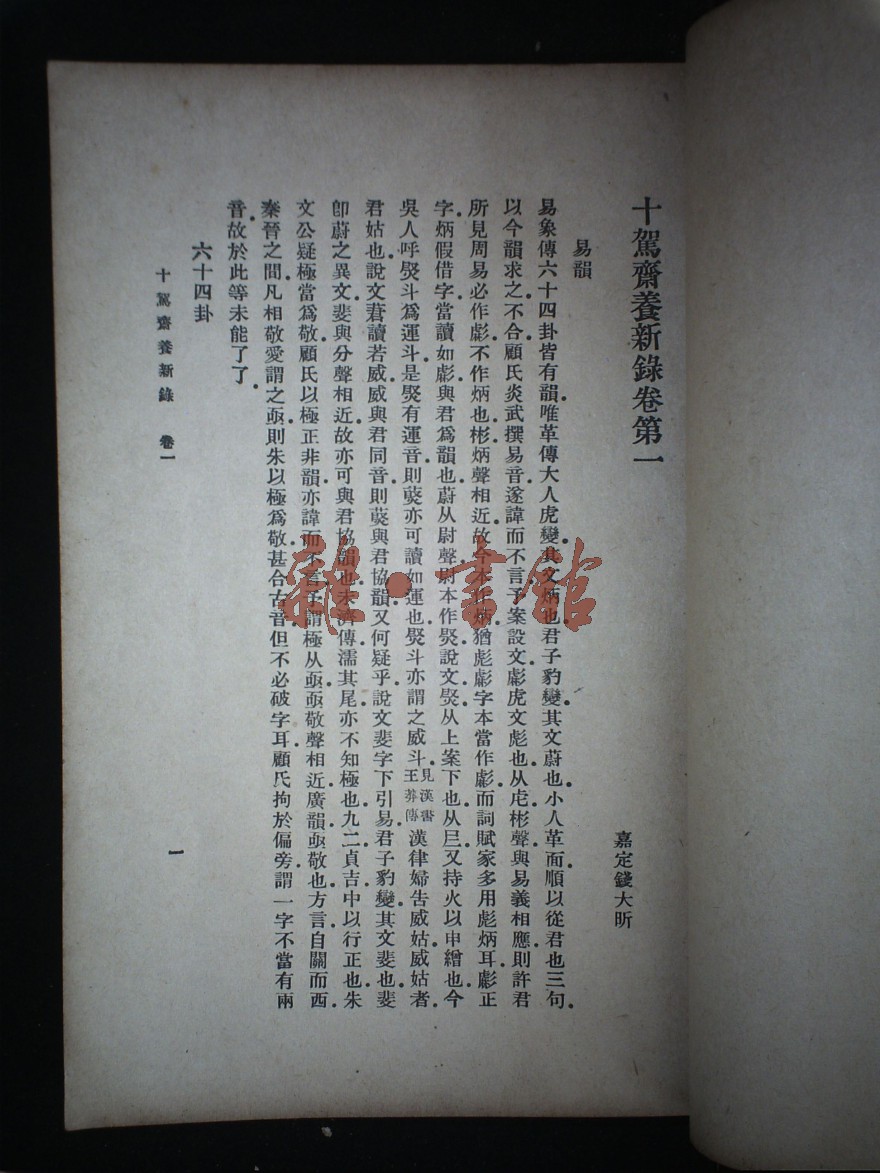 十駕齋養新錄卷第一
嘉定錢大昕
易韻
易象傳六十四卦皆有韻。唯革傳大人虎變。其文炳也。君子豹變。其文蔚也。小人革面。順以從君也三句。
以今韻求之不合。顧氏炎武撰易音。遂諱而不言。予案設文彪虎文彪也。从虍彬聲。與易義相應。則許君
所見周易必作彪。不作炳也。彬炳聲相近。故今本作炳。猶彪彪字本當作彪。而詞賦家多用彪炳耳。彪正
字。炳假借字。當讀如彪。與君爲韻也。蔚从尉聲。尉本作㷉。說文㷉从上案下也。从𡰥又持火以申繒也。今
吳人呼熨斗爲運斗。是熨有運音。則蔚亦可讀如運也。熨斗亦謂之威斗。見漢書王莽傳漢律婦告威姑。威姑者。
君姑也。說文莙讀若威。威與君同音。則蔚與君協韻。又何疑乎。說文斐字下引易君子豹變。其文斐也。斐
卽蔚之異文。斐與分聲相近。故亦可與君協韻也。未濟傳濡其尾。亦不知極也。九二貞吉。中以行正也。朱
文公疑極當爲敬。顧氏以極正非韻。亦諱而不言。予謂極从亟。亟敬聲相近。廣韻亟敬也。方言自關而西。
秦晉之間。凡相敬愛謂之亟。則朱以極爲敬。甚合古音。但不必破字耳。顧氏拘於偏旁。謂一字不當有兩
音。故於此等未能了了。
六十四卦
十駕齋養新錄 卷一
一
雜·書館